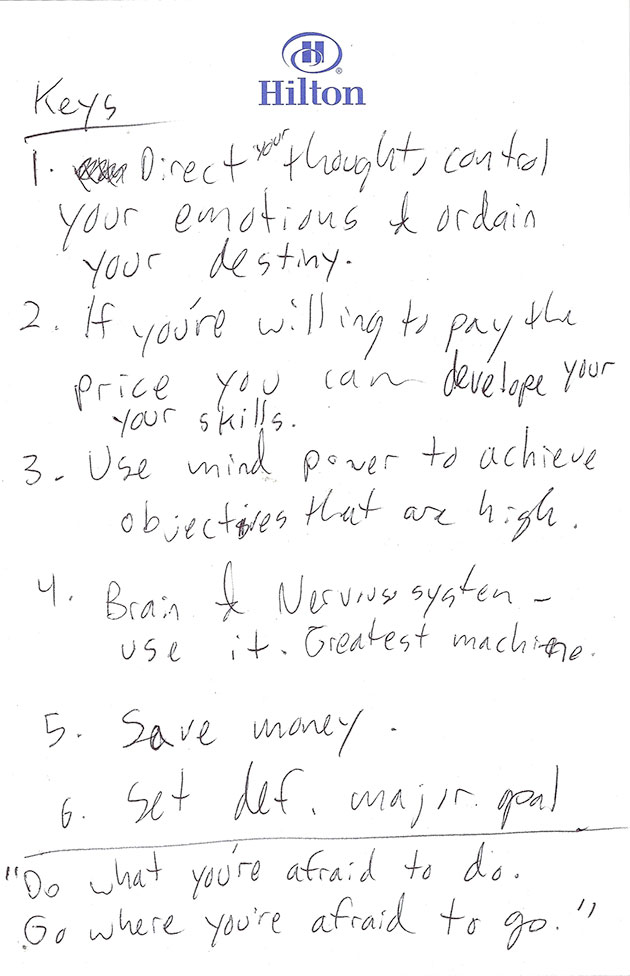 Hilton
Keys
1. Direct your thoughts, control
your emotions & ordain
your destiny.
2. If you're willing to pay the
price you can develope your
your skills.
3. Use mind power to achieve
objectives that are high.
4. Brain & Nervius system -
use it. Greatest machine.
5. Save money.
6. Set def. major goal
"Do what you're afraid to do.
Go where you're afraid to go."